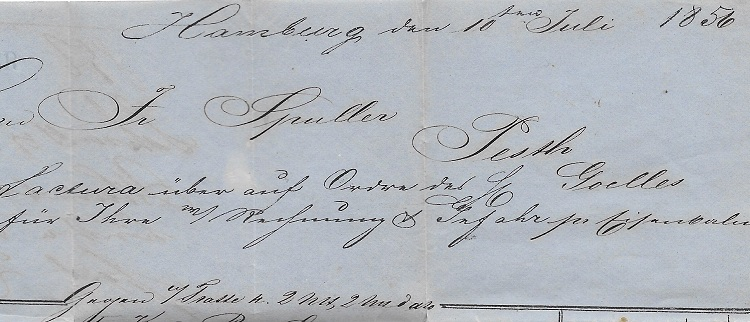 Hamburg den 10ten Juli 1856
Fr Spuller
Pesth
Factura über auf Ordre des H Goelles
für Ihre w/ Rechnung & Gefahr pr Eisenbahn
Gegen n/ Tratte a. 2 Mt, 2 Mt dato